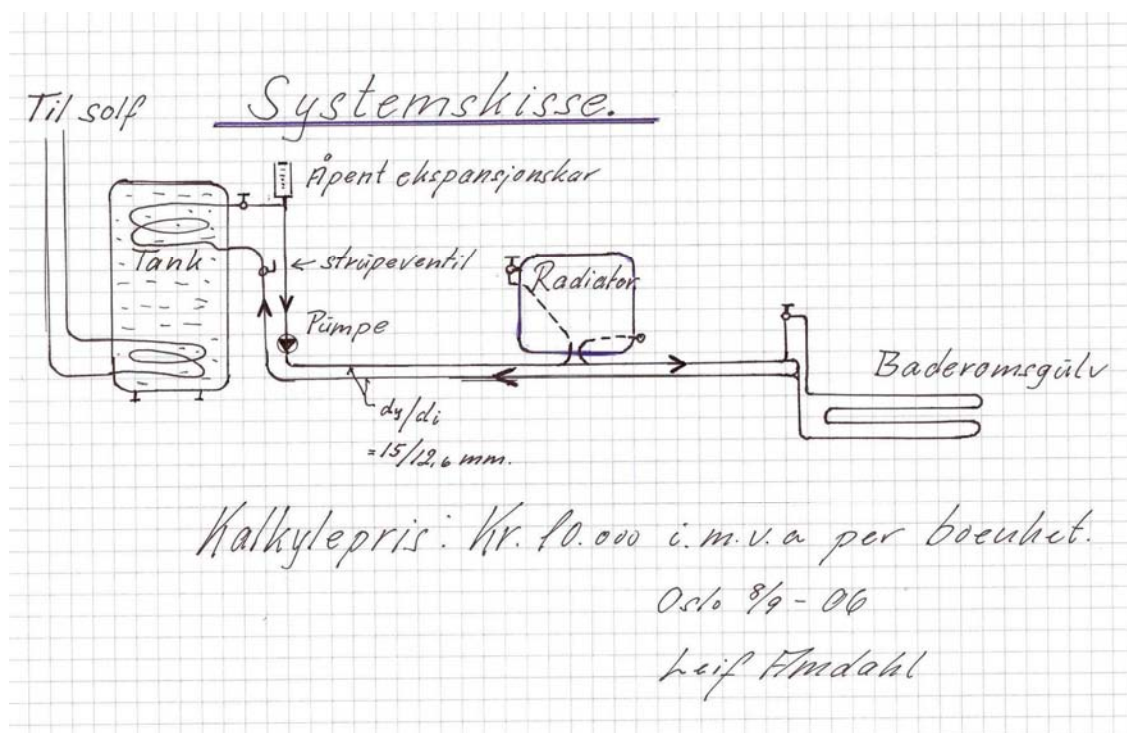 Systemskisse.
Til solf
Åpent ekspansjonskar
Tank
← strupeventil
Radiator
Pumpe
Baderomsgulv
dy/di
= 15/12,6 mm.
Kalkylepris: Kr. 10.000 i.m.v.a per boenhet.
Oslo 8/9 - 06
Leif Amdahl